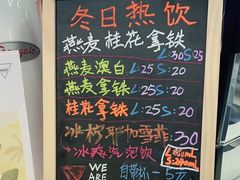 冬日热饮
燕麦桂花拿铁
L:30S:25
燕麦澳白 L:25 S:20
燕麦拿铁 L:25 S:20
桂花拿铁 L:25 S:20
冰椰耶加雪菲:30
冰爽汽泡饮
WE
ARE
自带杯-5元